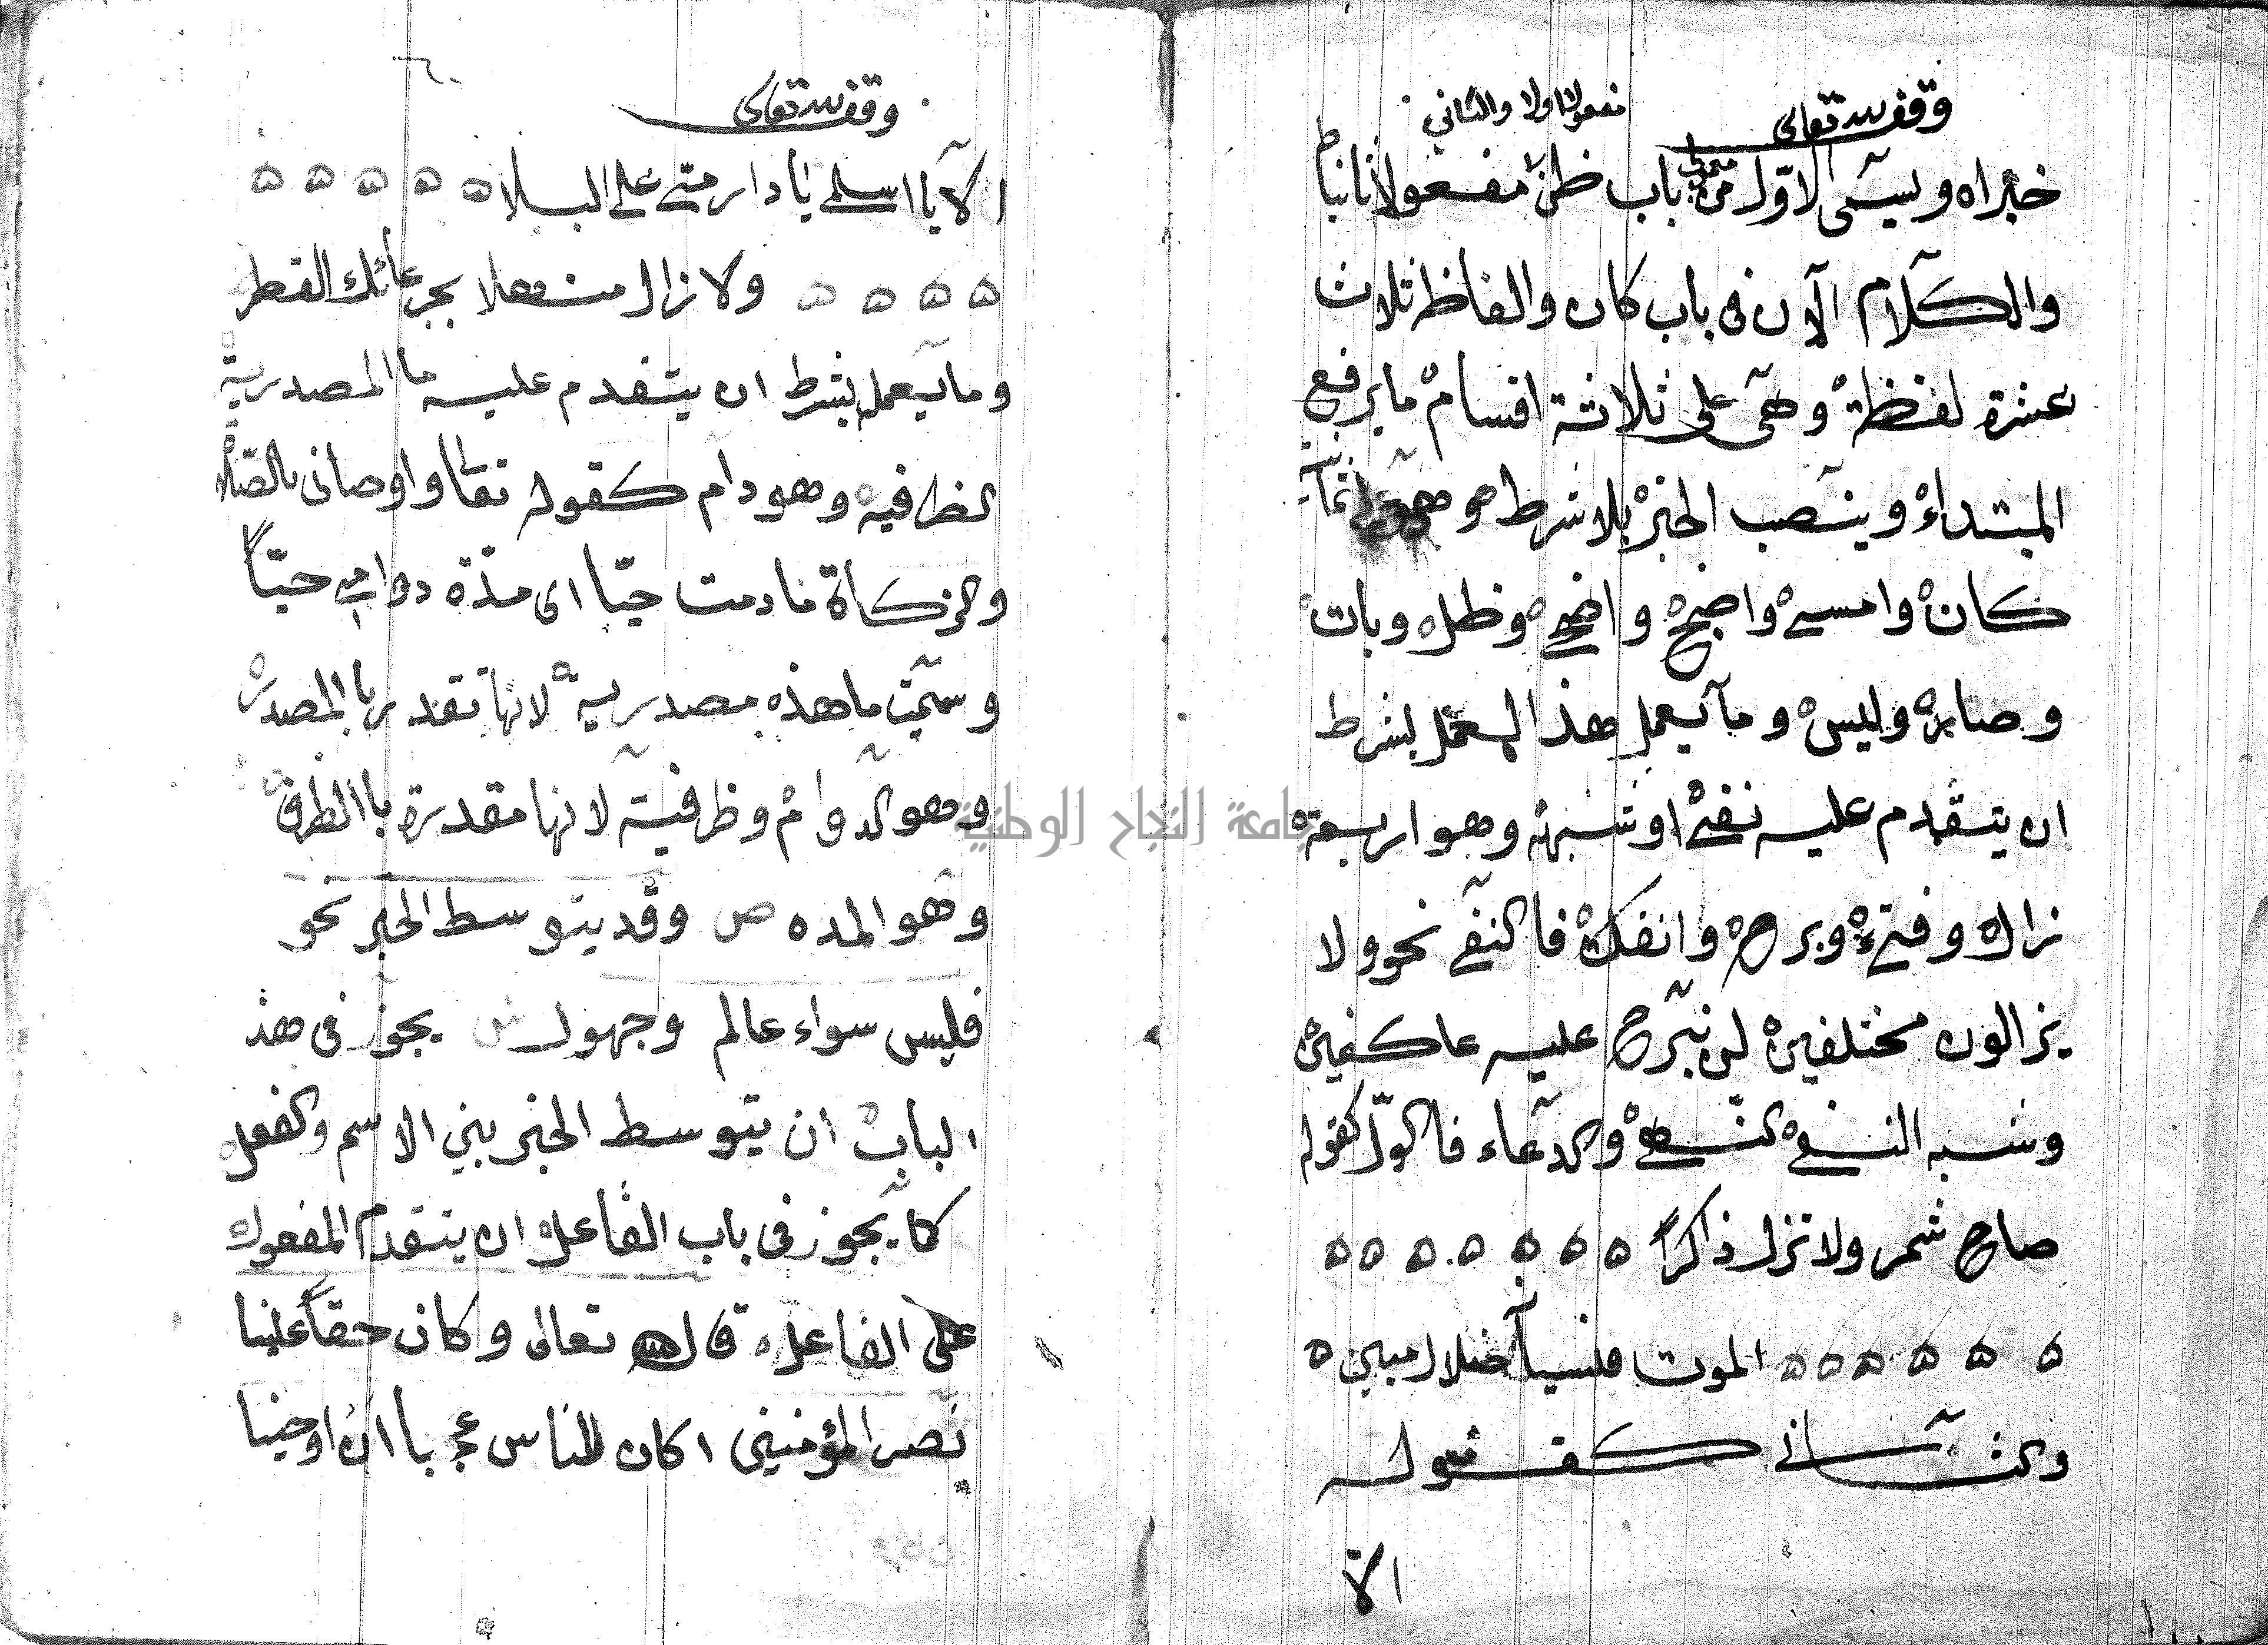 وقف لله تعالى
مفعولا اولا والثاني
خبراه ويسمى الاول من معمولى باب ظن مفعولا ثانيا
والكلام الآن فى باب كان والفاظ ثلاث
عشرة لفظة وهى على ثلاثة اقسام ما يرفع
المبتداء وينصب الخبر بلا شرط وهى ثمانية
كان وامسى واصبح واضحى وظل وبات
وصار وليس وما يعمل هذا العمل بشرط
ان يتقدم عليه نفى او شبهه وهو اربعة
زال وفتئ وبرح وانفك فالنفى نحو ولا
يزالون مختلفين لن نبرح عليه عاكفين
وشبه النفى النهى والدعاء فالاول كقوله
صاح شمر ولا تزل ذاكرًا ه ه ه ه ه ه ه
ه ه ه ه ه ه ه الموت فنسيا ضلال مبين ه
والثانى كقوله
الا
وقف لله تعالى
الا يا اسلمى يا دار مى على البلا ه ه ه ه ه
ه ه ه ه ولا زال منهلا بجرعائك القطر
وما يعمل بشرط ان يتقدم عليه ما المصدرية
الظرفية وهو دام كقوله تعا واوصانى بالصلاة
والزكاة ما دمت حيّا اى مدة دوامى حيّاً
وسميت ما هذه مصدرية لانها تقدر با المصدر
وهو الدوام وظرفية لانها مقدرة با الظرف
وهو المده ص وقد يتوسط الخبر نحو
فليس سواء عالم وجهول ش يجوز فى هذ
الباب ان يتوسط الخبر بين الاسم والفعل
كما يجوز فى باب الفاعل ان يتقدم المفعول
على الفاعل قال الله تعالى وكان حقاً علينا
نصر المؤمنين اكان للناس عجبا ان اوحينا
جامعة النجاح الوطنية